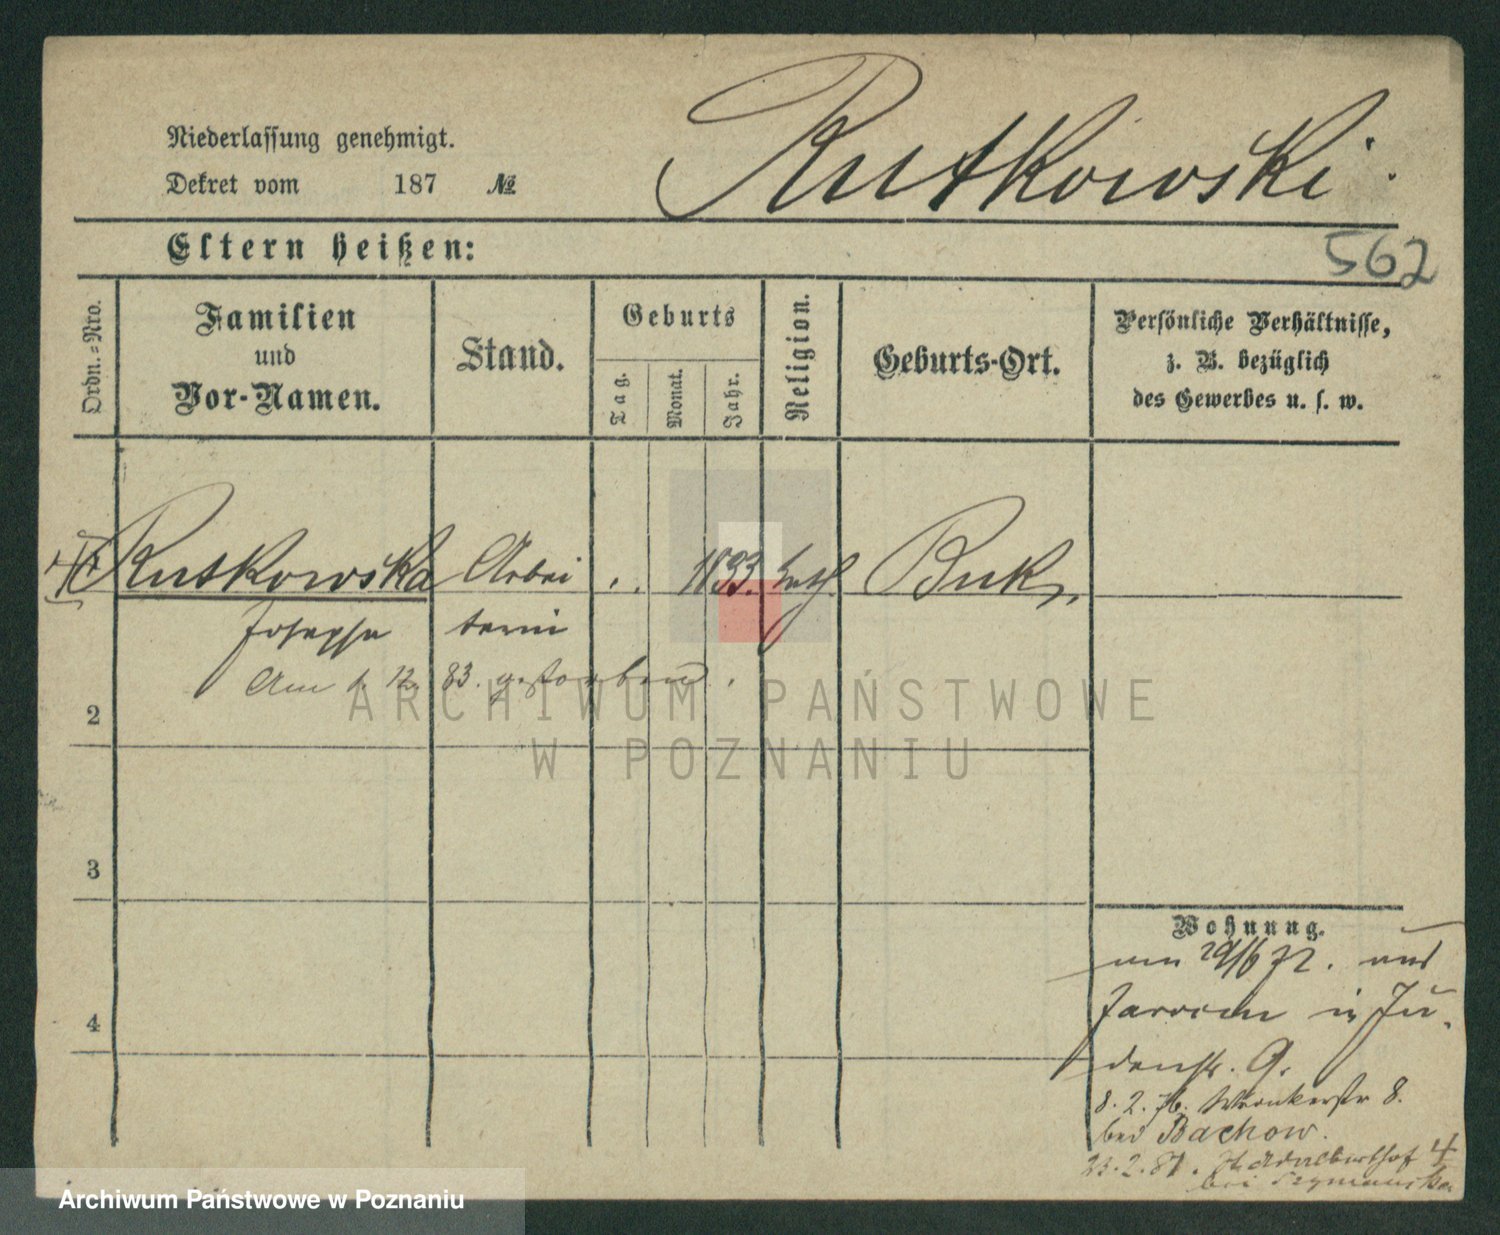 Niederlassung genehmigt.
Dekret vom 187 №
Rutkowski.
Eltern heißen:
562
Ordn.=Nro.
Familien
und
Vor-Namen.
Stand.
Geburts
Tag.
Monat.
Jahr.
Religion.
Geburts-Ort.
Persönliche Verhältnisse,
z. B. bezüglich
des Gewerbes u. s. w.
Rutkowska Arbei . . 1833. kath. Buk.
Josepha terin
Am 1. 12. 83. gestorben.
2
3
4
Wohnung.
29/6 72. aus
in Ju-
denstr. 9.
8. 2. 76. Wronkerstr 8.
bei Bachow.
23.2.81. Adalberthof 4
bei Szymanska
ARCHIWUM PAŃSTWOWE
W POZNANIU
Archiwum Państwowe w Poznaniu